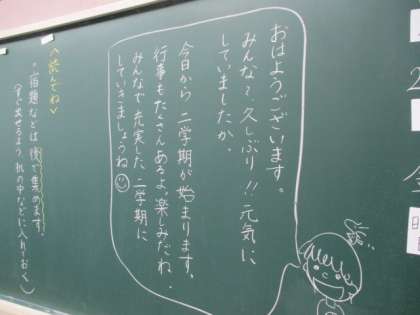 おはようございます。
みんな～、久しぶり!!元気に
していましたか。
今日から二学期が始まります。
行事もたくさんあるよ。楽しみだね。
みんなで充実した二学期に
していきましょうね
＜読んでね＞
。宿題などは後で集めます。
(すぐ出せるよう、机の中などに入れておく)